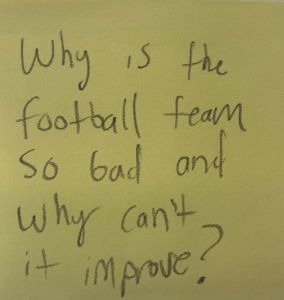 Why is the
football team
so bad and
why can't
it improve?